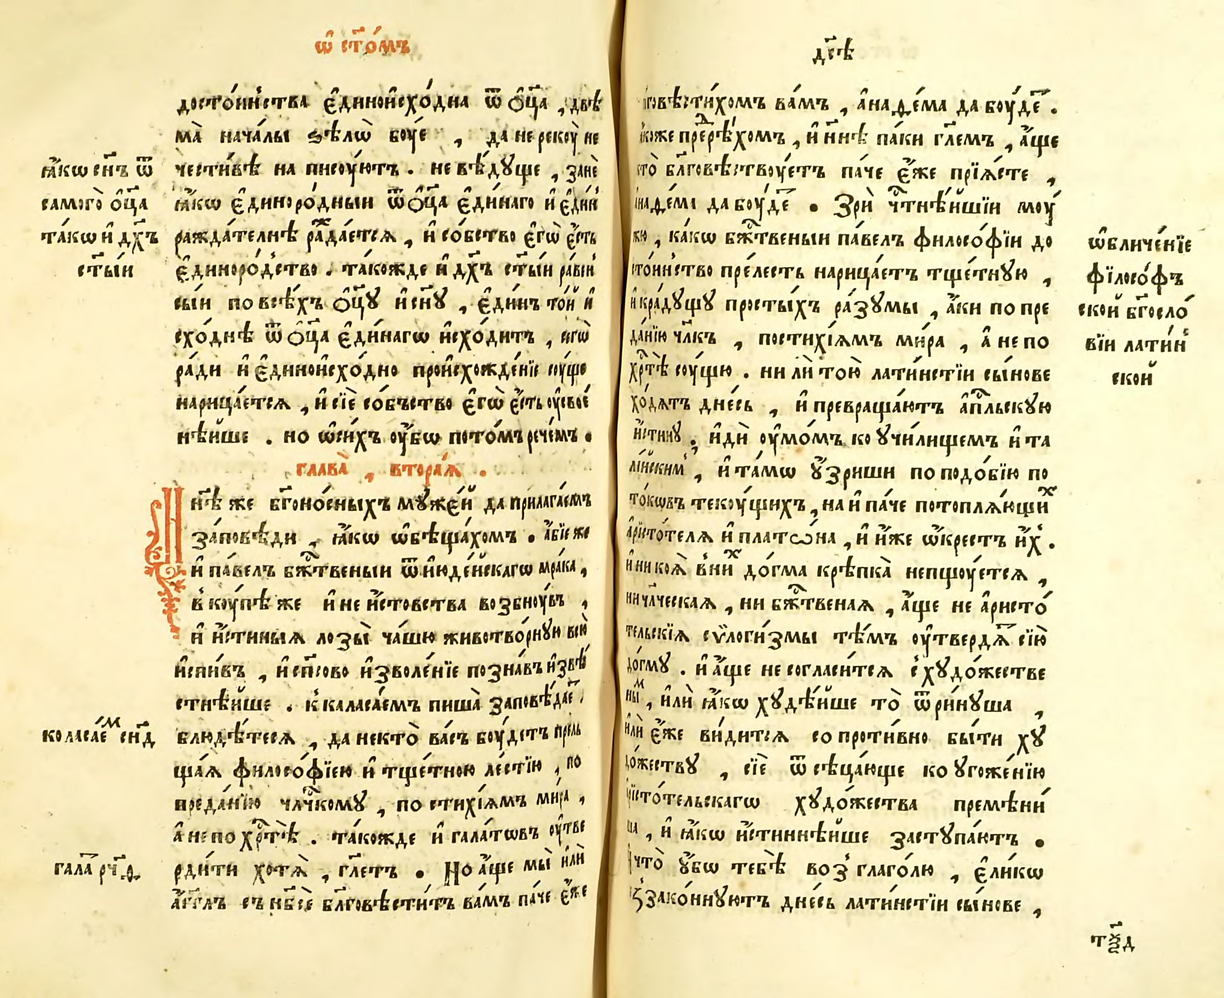 ѡ҆ ст҃о́мъ
досто́инства є҆диноисхо́дна ѿ ѻ҆ц҃а̀ , двѣ
ма̀ нача́лы ѕѣлѡ̀ боуе , да не рекоу̀ не
чести́вѣ на писоу́ютъ . не вѣ́дуще , занѐ
ꙗ҆́кѡ є҆диноро́дныи ѿ ѻ҆ц҃а̀ є҆ди́наго и҆ є҆ди́н
ражда́телнѣ ра́ждается , и҆ со́бство є҆гѡ̀ є҆́сть
є҆диноро́дство . тако́жде и҆ дх҃ъ ст҃ы́и ра́вн
сы́и по все́хъ ѻ҆ц҃у̀ и҆ сн҃у , є҆ди́нъ то́й и҆
схо́днѣ ѿ ѻ҆ц҃а̀ є҆ди́нагѡ и҆схо́дитъ , сегѡ̀
ра́ди и҆ є҆диноисхо́дно происхожде́нїе соу́ще
нарица́ется , и҆ сїѐ со́бъство є҆гѡ̀ є҆́сть оу҆свое
нѣ́йше . но ѡ҆ си́хъ оу҆́бѡ пото́мъ рече́мъ .
ꙗ҆́кѡ сн҃ъ ѿ
самого̀ ѻ҆ц҃а̀
та́кѡ и҆ дх҃ъ
ст҃ы́и
глава̀ , втора́ѧ .
Нн҃ѣ же бг҃оно́сныхъ мꙋже́й да прилага́емъ
за́повѣди , ꙗ҆́кѡ ѡ҆бѣща́хомъ . а҆́бїе же
и҆ па́велъ бж҃твеныи ѿ и҆юде́йскагѡ мра́ка ,
в коу́пѣ же и҆ неи҆́стовства возбноу́въ ,
и҆ и҆́стиныѧ лозы̀ ча́шю животво́рнꙋю всю̀
и҆спи́въ , и҆ сп҃сово и҆зволе́нїе позна́въ и҆звѣ́
стнѣ́йше . к каласа́емъ пиша̀ заповѣ́дает ,
блюдѣ́тесѧ , да некто̀ ва́съ боу́детъ прель
ща́ѧ филосо́фїею и҆ тще́тною ле́стїю , по
преда́нїю чл҃чкому , по стихі́ѧмъ ми́ра ,
а҆ не по хр҃тѣ̀ . тако́жде и҆ гала́товъ оу҆тве
рди́ти хотѧ̀ , гл҃етъ . Но а҆́ще мы̀ и҆лѝ
а҆́гг҃лъ съ нб҃сѐ бл҃говѣсти́тъ ва́мъ па́че є҆́же
коласа́ем сн҃д
гала рч҃ѳ.
дс҃ѣ
говѣсти́хомъ ва́мъ , а҆на́ѳема да боу́де .
коже прере́хомъ , и҆ нн҃ѣ па́ки гл҃емъ , а҆́ще
то̀ бл҃говѣ́ствоуетъ па́че є҆́же прїѧ́сте ,
на́ѳема да боу́де . Зрѝ чт҃нѣ́йшїи моу́
жю , ка́кѡ бж҃твеныи па́велъ философі́и до
сто́инство пре́лесть нарица́етъ тще́тную ,
и҆ кра́дущу просты́хъ ра́зумы , а҆́ки по пре
да́нїю чл҃к , по стихі́ѧмъ ми́ра , а҆ не по
хр҃тѣ̀ соу́щю . ни ли то́ю лати́нстїи сы́нове
хо́дѧтъ дне́сь , и҆ превраща́ютъ а҆пл҃ьскую
и҆́стину , и҆дѝ оу҆мо́мъ ко учи́лищемъ и҆та
лі́йским , и҆ та́мѡ у҆́зриши по подо́бїю по
то́кѡвъ текоу́щихъ , наи҆па́че потоплѧ́ющих
а҆ристо́телѧ и҆ плато́на , и҆ и҆́же ѡ҆́крестъ и҆́х .
и҆ ни коѧ̀ в них до́гма крѣ́пка непщоу́ется ,
ни чл҃ческая , ни бж҃твеная , а҆́ще не а҆ристо́
тельскїѧ сѷлоги́змы тѣ́мъ оу҆твердѧ̀ сїю̀
до́гму . и҆ а҆́ще не согласи́тся с худо́жестве
ным , и҆лѝ ꙗ҆́кѡ худѣ́йше то̀ ѿри́нуша ,
и҆лѝ є҆́же ви́дится сопроти́вно бы́ти ху
до́жеству , сїѐ ѿсѣца́юще ко угоже́нїю
а҆ристо́тельскагѡ худо́жества премѣни́
ша , и҆ ꙗ҆́кѡ и҆́стиннѣ́йше заступа́ютъ .
что̀ у҆́бѡ тебѣ̀ возглаго́лю , є҆ли́кѡ
ꙁзако́ннуютъ дне́сь лати́нстїи сы́нове ,
ѡ҆бличе́нїе
фїлосо́фъ
ской бг҃осло́
вїи лати́н
ской